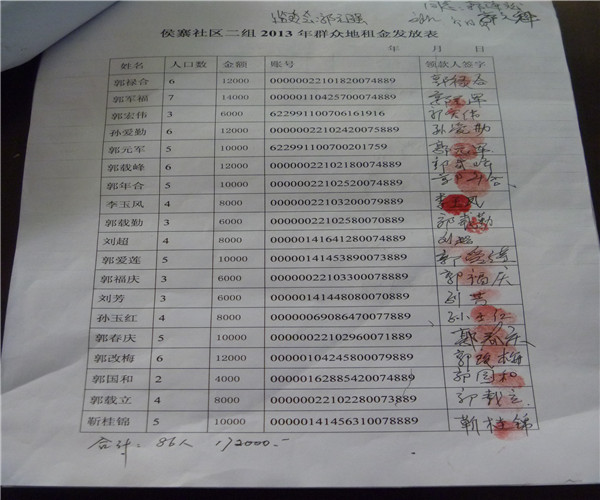 监委会:郭文强
侯寨社区二组2013年群众地租金发放表
年 月 日
姓名 人口数 金额 账号 领款人签字
郭禄合 6 12000 00000022101820074889 郭禄合
郭军福 7 14000 00000110425700074889
郭宏伟 3 6000 622991100706161916 郭宏伟
孙爱勤 6 12000 00000022102420075889 孙爱勤
郭元军 5 10000 622991100700201759 郭元军
郭载峰 6 12000 00000022102180074889 郭载峰
郭年合 5 10000 00000022102520074889 郭年合
李玉风 4 8000 00000022103200079889 李玉风
郭载勤 3 6000 00000022102580070889 郭载勤
刘超 4 8000 00000141641280074889 刘超
郭爱莲 5 10000 00000141453890073889 郭
郭福庆 3 6000 00000022103300078889 郭福庆
刘芳 3 6000 00000141448080070889 刘芳
孙玉红 4 8000 00000069086470077889 孙玉红
郭春庆 5 10000 00000022102960071889 郭春庆
郭改梅 6 12000 00000104245800079889 郭改梅
郭国和 2 4000 00000162885420074889 郭国和
郭载立 4 8000 00000022102280073889 郭载立
靳桂锦 5 10000 00000141456310078889 靳桂锦
合计: 86人 172000.-